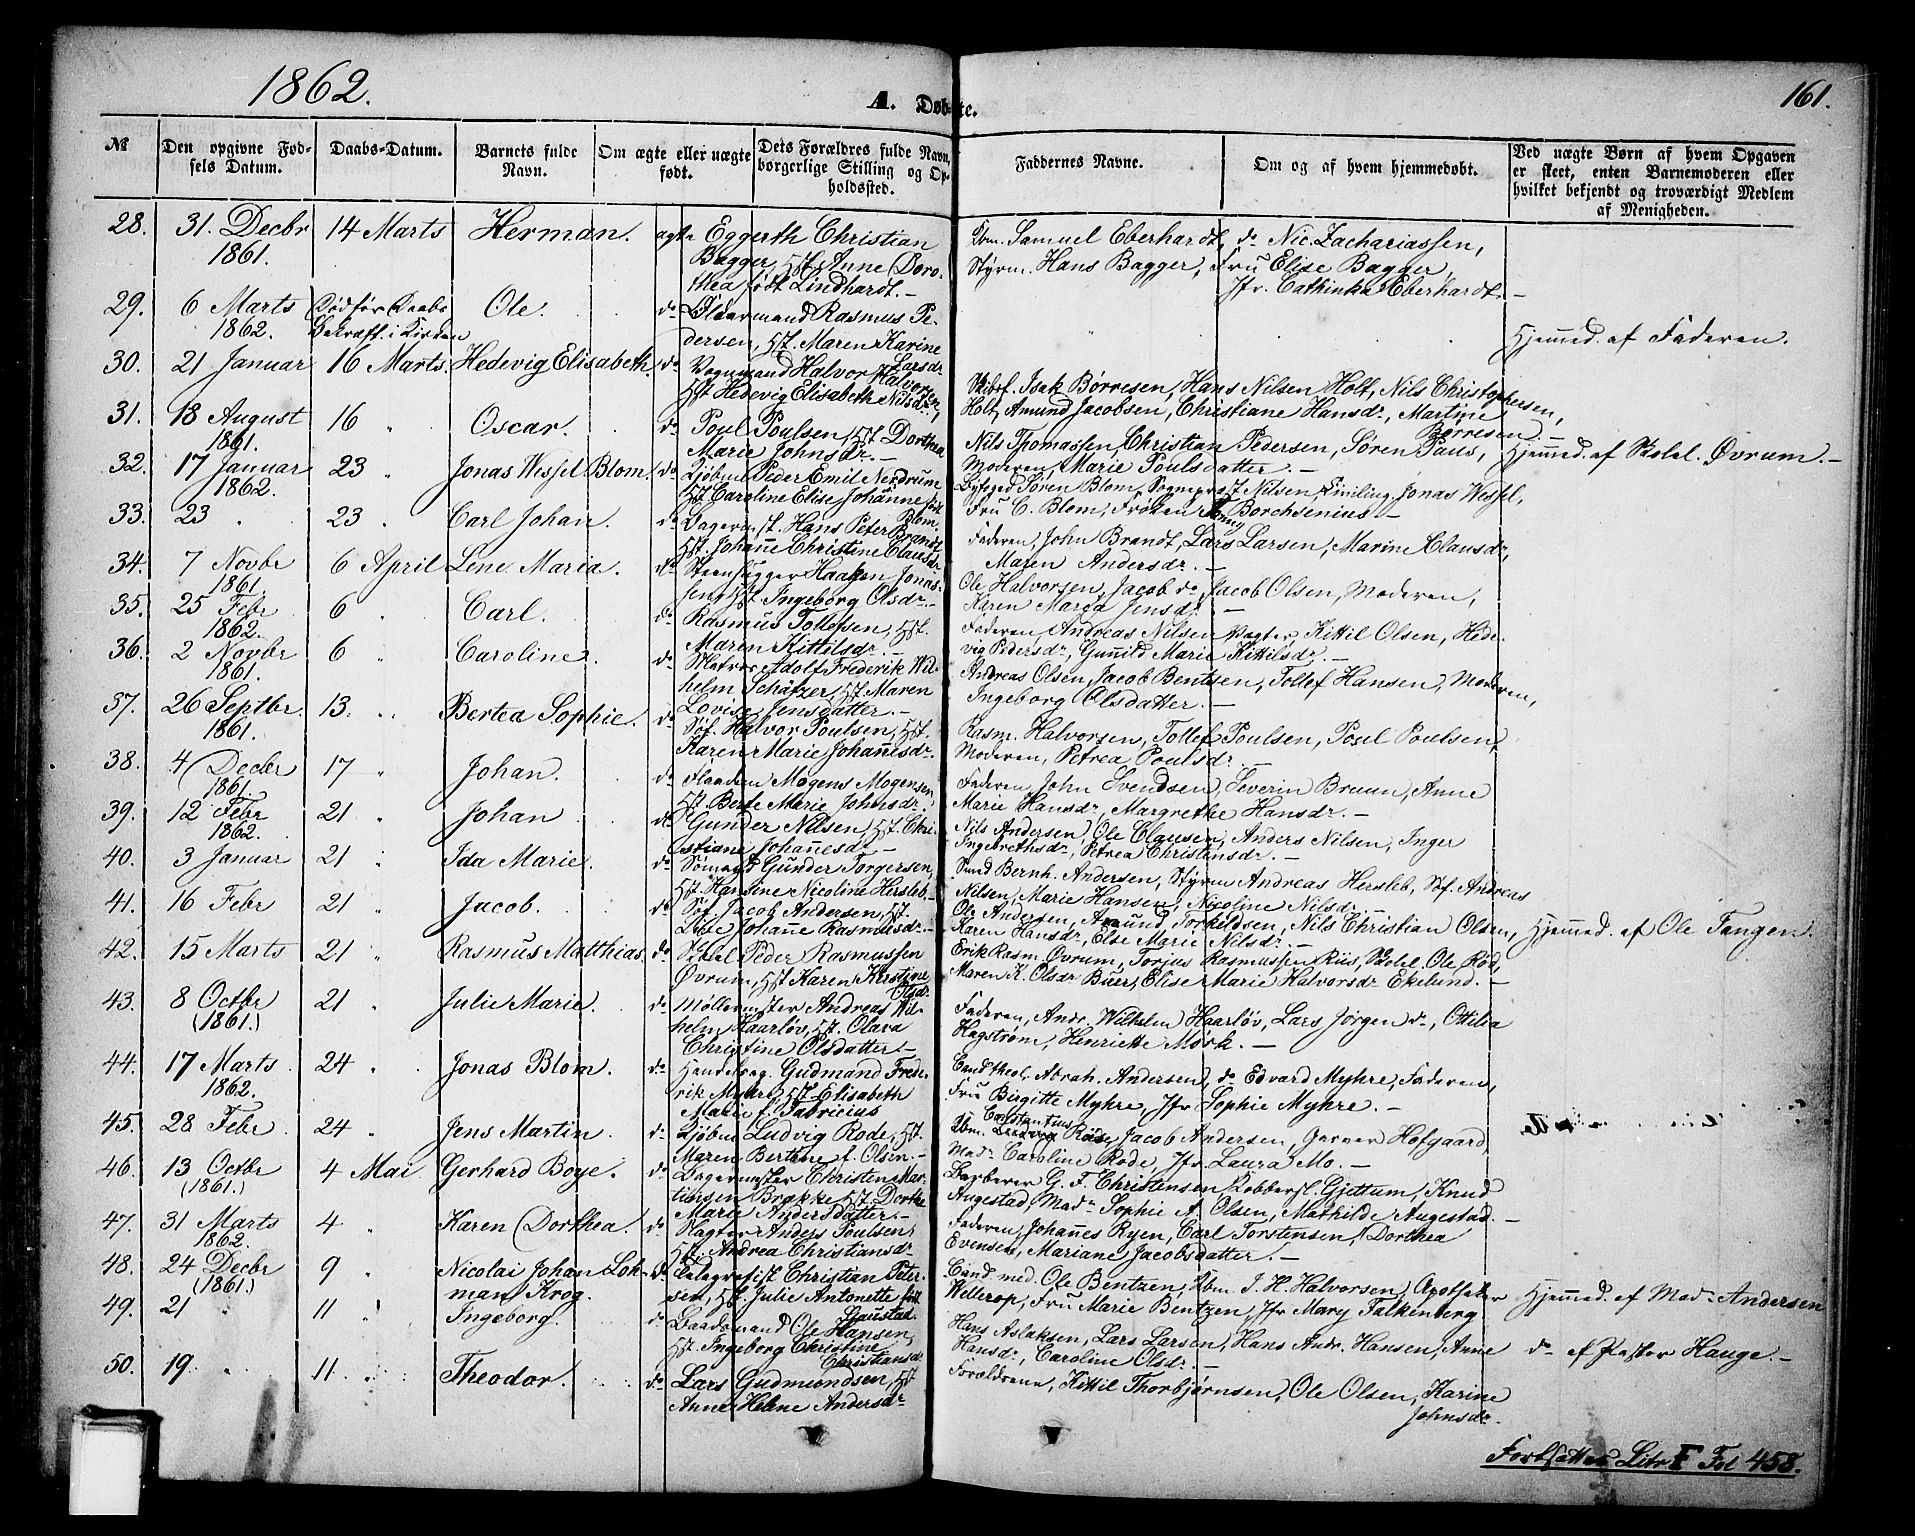 1862.
161.
A. Døbte.
№
Den opgivne Fødsels Datum.
Daabs-Datum.
Barnets fulde Navn.
Om ægte eller uægte født.
Dets Forældres fulde Navn, borgerlige Stilling og Opholdssted.
Faddernes Navne.
Om og af hvem hjemmedøbt.
Ved uægte Børn af hvem Opgaven er skeet, enten Barnemoderen eller hvilket bekjendt og troværdigt Medlem af Menigheden.
28. 31 Decbr 1861. 14 Marts Herman. ægte Eggerth Christian
Bagger, Hst. Anne Dorothea født Lindhardt.
Kbm. Samuel Eberhardt, do Nic. Zachariassen,
Styrm. Hans Bagger, Fru Elise Bagger,
Jfr. Cathinka Eberhardt.
29. 6 Marts 1862. Død før Daabs Bekræft. i Kirken Ole. do Oldermand Rasmus Pedersen, Hst. Maren Karine Larsdr
Hjemmed. af Faderen.
30. 21 Januar 16 Marts. Hedevig Elisabeth. do Vognmand Halvor Halvorsen,
Hst Hedevig Elisabeth Nilsdr,
Skibsf. Isak Børresen, Hans Nilsen Holt, Nils Christophersen,
Holt, Amund Jacobsen, Christiane Hansdr, Martine Børresen.
31. 18 August 1861. 16 Oscar. do Poul Poulsen, Hst. Dorthea
Marie Johnsdr.
Nils Thomassen, Christian Pedersen, Søren Paus,
Moderen, Marie Poulsdatter.
Hjemmed. af Skolel. Øvrum.
32. 17 Januar 1862. 23 Jonas Wessel Blom. do Kjøbmd Peder Emil Nerdrum
Hst Caroline Elise Johanne født Blom.
Byfoged Søren Blom, Sogneprest Nilsen, Jonas Wessel,
Fru C. Blom, Frøken Fanny Borchsenius
33. 23 23 Carl Johan. do Hans Peter Brandt
Hst. Johanne Christine Clausdr
Faderen, John Brandt, Lars Larsen, Marine Clausdr,
Maren Andersdr.
34. 7 Novbr 1861. 6 April Lene Maria. do Steenhugger Haaken Jonassen, Hst Ingeborg Olsdr.
Ole Halvorsen, Jacob do, Jacob Olsen, Moderen,
Karen Maria Jensdr.
35. 25 Febr 1862. 6 Carl. do Rasmus Tollefsen, Hst.
Maren Kittilsdr.
Faderen, Andreas Nilsen Vagter, Kittil Olsen, Hedevig Pedersdr, Gunild Marie Kittilsdr.
36. 2 Novbr 1861. 6 Caroline. do Matros Adolf Frederik Wilhelm Schätzer, Hst Maren
Lovise Jensdatter.
Andreas Olsen, Jacob Bentsen, Tollef Hansen, Moderen,
Ingeborg Olsdatter.
37. 26 Septbr. 1861. 13. Bertea Sophie. do Søf. Halvor Poulsen, Hst.
Karen Marie Johannesdr.
Rasm. Halvorsen, Tollef Poulsen, Poul Poulsen,
Moderen, Petrea Poulsdr.
38. 4 Decbr 1861. 17 Johan. do Mogens Mogensen
Hst. Berte Marie Johnsdr.
Faderen, John Svendsen, Severin Bruun, Anne
Marie Hansdr, Margrethe Hansdr.
39. 12 Febr 1862. 21 Johan do Gunder Nilsen, Hst. Christiane Johannesdr.
Nils Andersen, Ole Clausen, Anders Nilsen, Inger
Ingebrethsdr, Petrea Christensdr.
40. 3 Januar 21 Ida Marie. do Sømand Gunder Torgersen,
Hst. Hansine Nicoline Hersleb.
Bernh. Andersen, Styrm Andreas Hersleb, Søf. Andreas
Nilsen, Marie Hansen, Nicoline Nilsdr.
41. 16 Febr 21 Jacob. do Søf. Jacob Andersen, Hst.
Lise Johanne Rasmusdr.
Ole Andersen, Amund Torkildsen, Nils Christian Olsen,
Karen Hansdr, Else Marie Nilsdr.
Hjemmed. af Ole Tangen.
42. 15 Marts 21 Rasmus Matthias. do Skolel Peder Rasmussen
Øvrum, Hst Karen Kirstine Olsdr.
Erik Rasm. Øvrum, Torjus Rasmussen Riis, Skolel. Ole Rød,
Maren K. Olsdr Buer, Elise Marie Halvorsdr Ekelund.
43. 8 Octbr (1861.) 21 Julie Marie. do Møllermester Andreas Wilhelm Haarløv, Hst. Olava
Christine Olsdatter.
Faderen, Andr. Wilhelm Haarløv, Lars Jørgen do, Ottilia
Hagstrøm, Henriette Mørk.
44. 17 Marts 1862. 24 Jonas Blom. do Handelsag. Gudmand Frederik Myhre, Hst Elisabeth
Marie f. Fabricius
Cand theol. Abrah. Andersen, do Edvard Myhre, Faderen,
Fru Birgitte Myhre, Jfr Sophie Myhre.
45. 28 Febr 24 Jens Martin. do Kjøbm Ludvig Rode, Hst.
Maren Bertine f. Olsen.
Kbm. Constantius Rode, Jacob Andersen, Garver Hofgaard,
Mad. Caroline Rode, Jfr. Laura Mo.
46. 13 Octbr (1861.) 4 Mai Gerhard Boye. do Bagermester Christen Martinsen Brække, Hst. Dorthe
Marie Andersdatter.
Barberer G. F. Christensen, Kobbersl. Gjettum, Knud
Augestad, Mad. Sophie A. Olsen, Mathilde Augestad.
47. 31 Marts 1862. 4 Karen Dorthea. do Vagter Anders Poulsen,
Hst. Andrea Christiansdr
Faderen, Johannes Ryen, Carl Torstensen, Dorthea
Evensen, Mariane Jacobsdatter.
48. 24 Decbr (1861.) 9 Nicolai Johan Lohmann Krog. do Telegrafist Christian Petersen, Hst. Julie Antonette født Gaustad
Cand med. Ole Bentzen, Kbm. I. H. Halvorsen, Apotheker
Wellerop, Fru Marie Bentzen, Jfr Mary Falkenberg
Hjemmed. af Mad. Andersen
49. 21 11 Ingeborg. do Gaardmand Ole Hansen,
Hst. Ingeborg Christine Christiansdr
Hans Aslaksen, Lars Larsen, Hans Andr. Hansen, Anne
Hansdr, Caroline Olsdr.
do af Pastor Hauge.
50. 19. 11 Theodor. do Lars Gudmundsen, Hst
Anne Helene Andersdr
Forældrene, Kittil Thorbjørnsen, Ole Olsen, Karine
Johnsdr.
Fortsættes Litr F Fol 458.